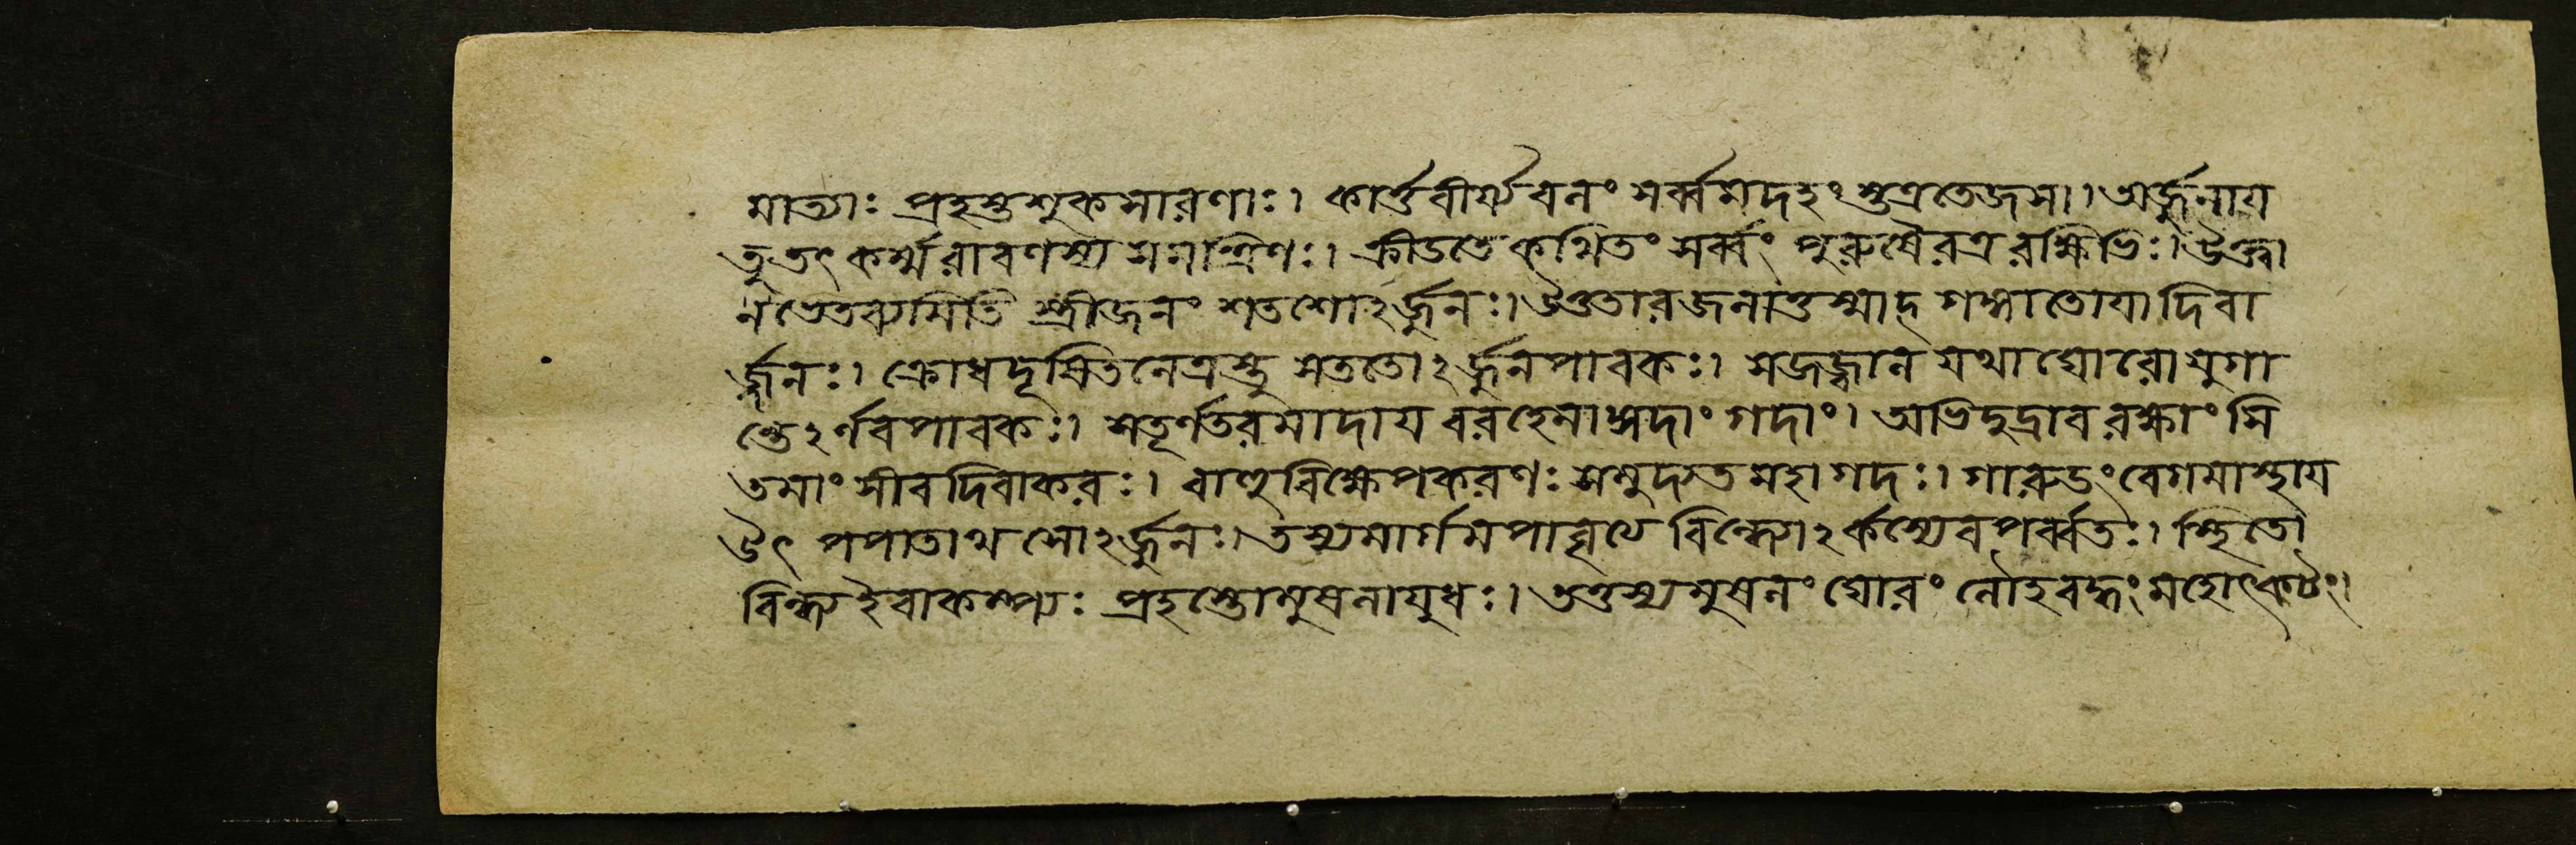 মাত্যাঃ প্রহস্তশুকসারণাঃ। কার্ত্তবীর্য্যবনং সর্ব্বমদহংস্তত্রতেজসা। অর্জ্জুনায
তুতৎ কর্ম্মরাবণস্য সমন্ত্রিণঃ। ক্রীডতে কথিতং সর্ব্বং পুরুষৈরত্র রক্ষিভিঃ। উক্ত্বা
নভেতব্যমিতি স্ত্রীজনং শতশোঽর্জ্জুনঃ। উত্ততারজলাত্তস্মাদ্গঙ্গাতোযাদিবা
র্জ্জুনঃ। ক্রোধদূষিতনেত্রস্তু সততোঽর্জ্জুনপাবকঃ। সজজ্বাল যথাঘোরো যুগা
ন্তেঽর্ণবপাবকঃ। সতূর্ণতরমাদায বরহেমাঙ্গদাং গদাং। অভিদুদ্রাব রক্ষাংসি
তমাংসীবদিবাকরঃ। বাহুবিক্ষেপকরণঃ সমুদ্যতমহাগদঃ। গারুডংবেগমাস্থায
উৎ পপাতাথ সোঽর্জ্জুনঃ। তস্যমার্গমপাবৃত্য বিন্ধ্যোঽর্কস্যেবপর্ব্বতঃ। স্থিতো
বিন্ধ্যইবাকম্প্যঃ প্রহস্তোমুষলাযুধঃ। ততস্যমুষলং ঘোরং লৌহবদ্ধং মহোৎকটং।